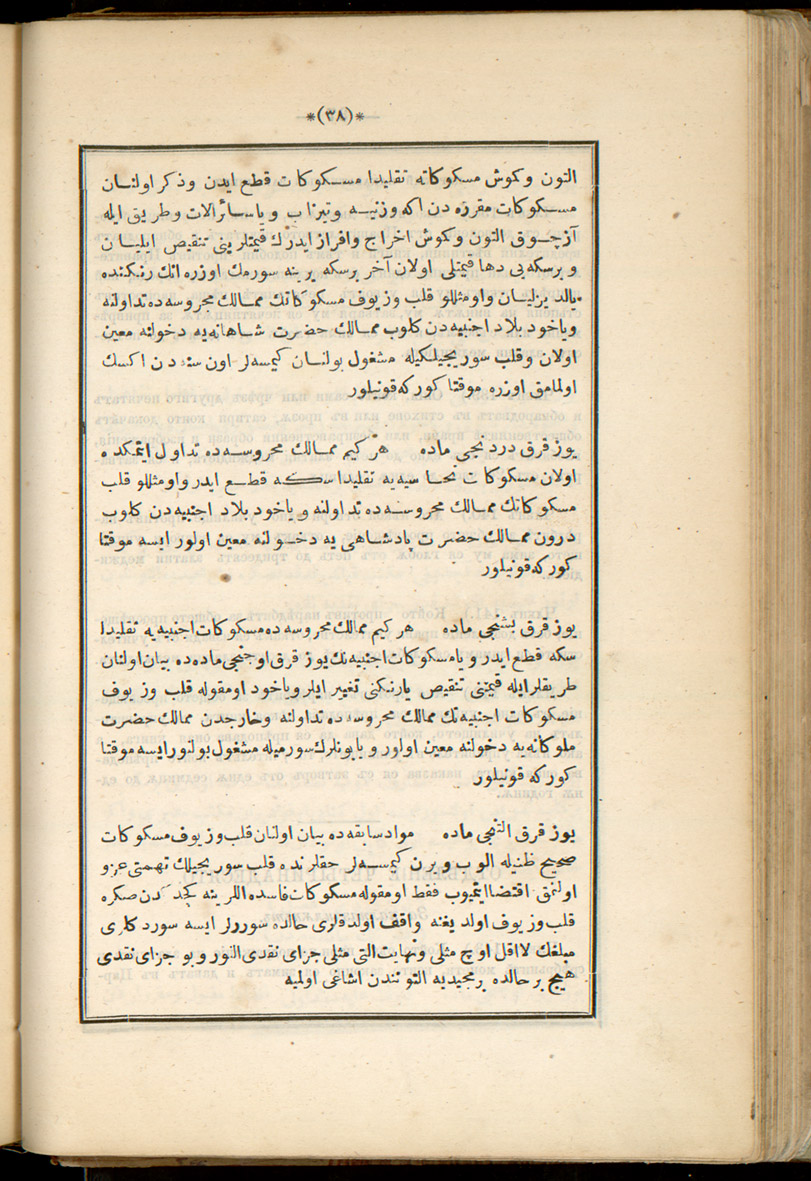 *(٣٨)*
التون وكوش مسكوكاته تقليدا مسكوكات قطع ايدن وذكر اولنان
مسكوكات مقرره دن اكه وزنيه وتيزاب وياسائرالات وطريق ايله
آزچوق التون وكوش اخراج وافراز ايدرك قيمتلريني تنقيص ايليان
و برسكه يى دها قيمتلى اولان آخر برسكه يرينه سورمك اوزره انك رنكنده
يالديزليان واومثللو قلب وزيوف مسكوكاتك ممالك محروسه ده تداولنه
وياخود بلاد اجنبيه دن كلوب ممالك حضرت شاهانه يه دخولنه معين
اولان وقلب سوريجيلكيله مشغول بولنان كيمسه لر اون سنه دن اكسك
اولمامق اوزره موقتا كوركه قونيلور
يوز قرق دردنجى ماده هر كيم ممالك محروسه ده تداول ايتمكده
اولان مسكوكات نحاسيه يه تقليدا سكه قطع ايدر واومثللو قلب
مسكوكاتك ممالك محروسه ده تداولنه وياخود بلاد اجنبيه دن كلوب
درون ممالك حضرت پادشاهى يه دخولنه معين اولور ايسه موقتا
كوركه قونيلور
يوز قرق بشنجى ماده هر كيم ممالك محروسه ده مسكوكات اجنبيه يه تقليدا
سكه قطع ايدر ويا مسكوكات اجنبيه نك يوز قرق اوچنجى ماده ده بيان اولنان
طريقلرايله قيمتنى تنقيص يارنكنى تغيير ايلر وياخود اومقوله قلب وزيوف
مسكوكات اجنبيه نك ممالك محروسه ده تداولنه وخارجدن ممالك حضرت
ملوكانه يه دخولنه معين اولور ويابونلرك سورميله مشغول بولنورايسه موقتا
كوركه قونيلور
يوز قرق التنجى ماده مواد سابقه ده بيان اولنان قلب وزيوف مسكوكات
صحيح ظنيله الوب ويرن كيمسه لر حقلرنده قلب سوريجيلك تهمتى عزو
اولنمق اقتضا ايتميوب فقط اومقوله مسكوكات فاسده اللرينه كچدكدن صكره
قلب وزيوف اولديغنه واقف اولدقلرى حالده سوررلر ايسه سوردكلرى
مبلغك لااقل اوچ مثلى ونهايت التى مثلى جزاى نقدى النور وبو جزاى نقدى
هيچ برحالده برمجيديه التونندن اشاغى اولميه